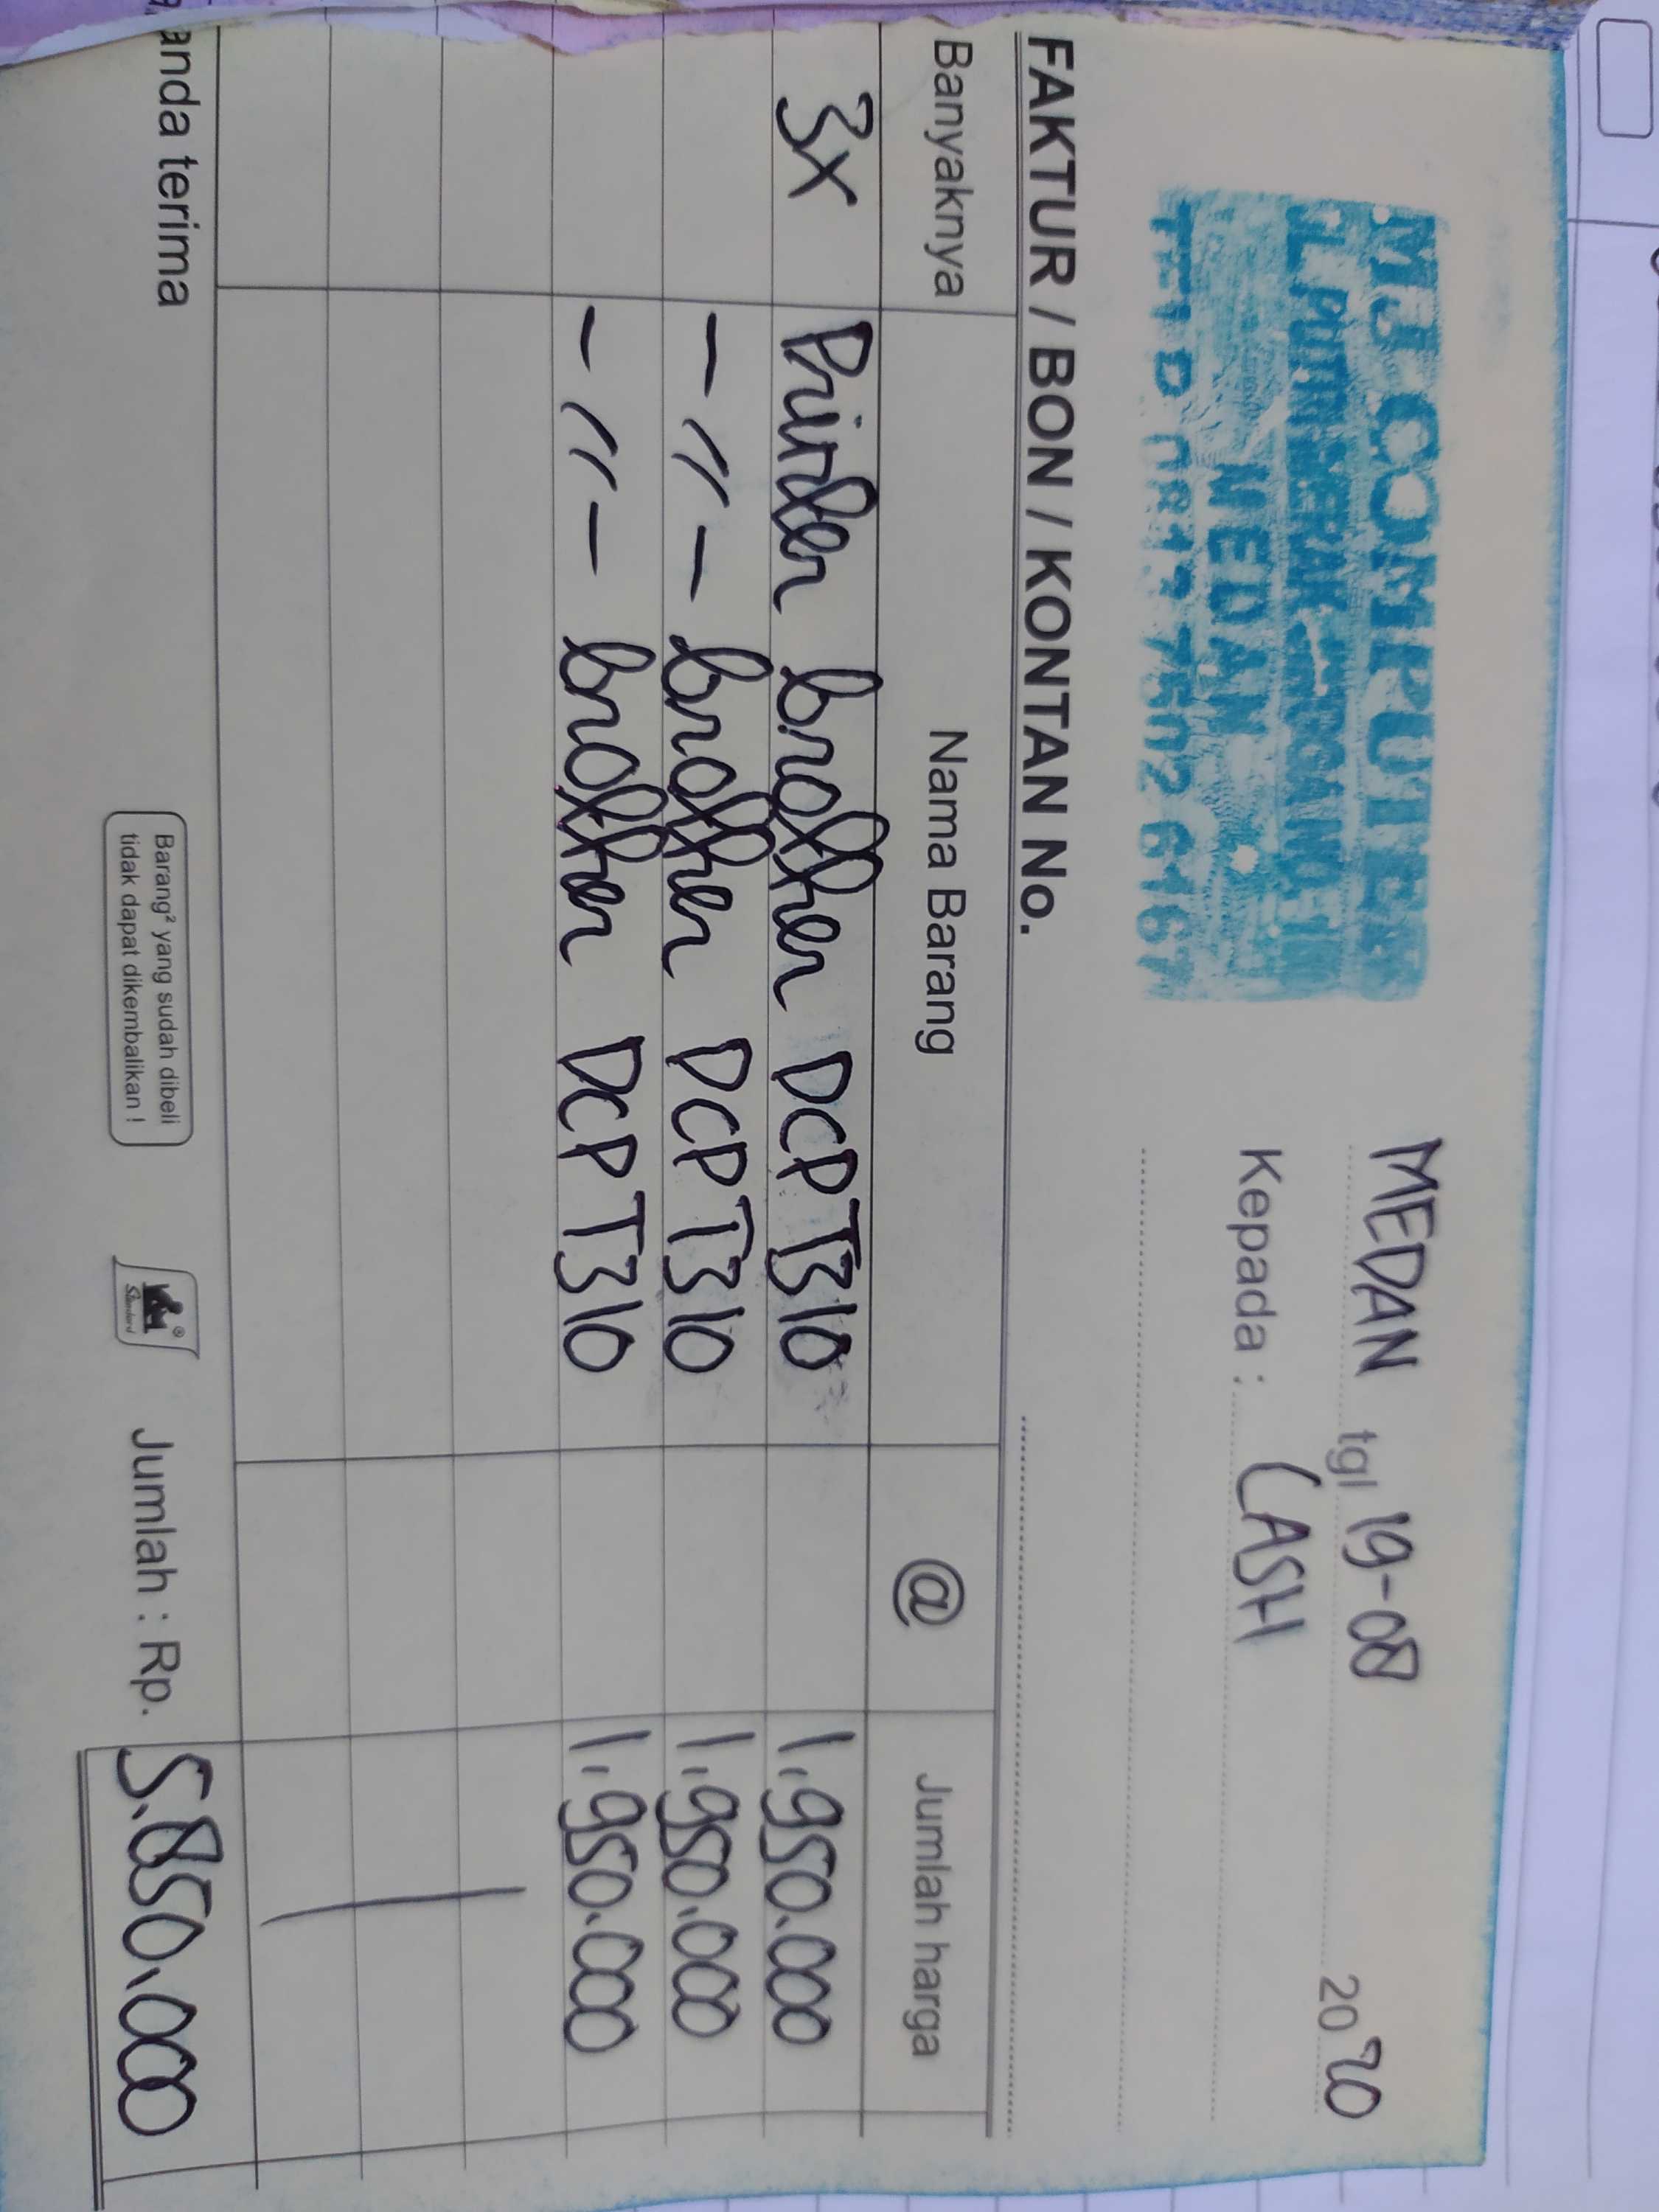 MJ COMPUTER
MEDAN
MEDAN tgl 19-08 2020
Kepada : CASH
FAKTUR / BON / KONTAN No.
Banyaknya Nama Barang @ Jumlah harga
3x Printer brother DCP T310 1.950.000
-〃- brother DCP T310 1.950.000
-〃- brother DCP T310 1.950.000
anda terima
Barang² yang sudah dibeli
tidak dapat dikembalikan !
Standard
Jumlah : Rp. 5.850.000